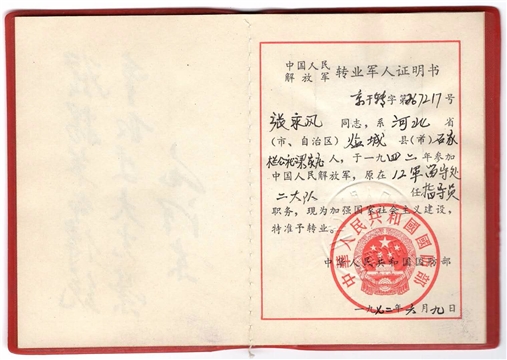 中国人民
解放军 转业军人证明书
字第267217号
同志，系河北省
(市、自治区)盐城县(市)
人，于一九四二年参加
中国人民解放军，原在12军
二大队任指导员
职务，现为加强国家社会主义建设，
特准予转业。
中华人民共和国国防部
中華人民共和國國防部
一九七二年六月九日